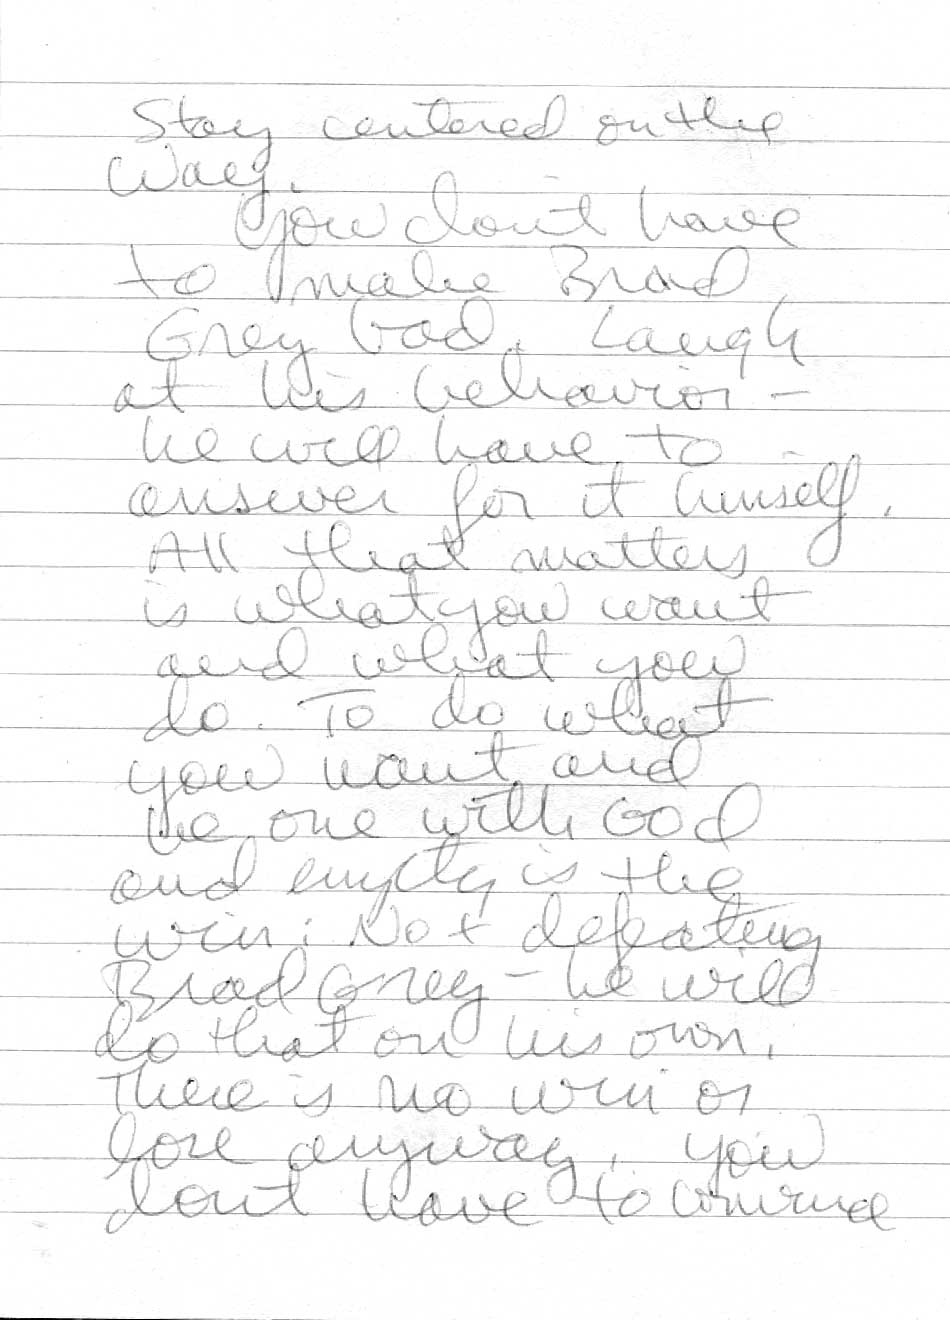 Stay centered on the
Way.
You don't have
to make Brad
Grey bad. Laugh
at his behavior -
he will have to
answer for it himself.
All that matters
is what you want
and what you
do. To do what
you want and
be one with God
and empty is the
win: Not defeating
Brad Grey - he will
do that on his own.
There is no win or
lose anyway. You
don't have to convince